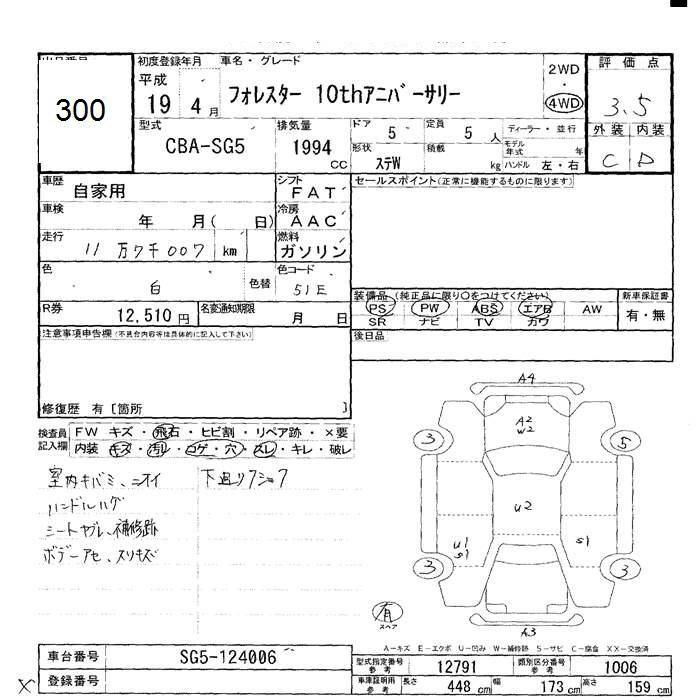 300
初度登録年月 車名・グレード
平成 19 4月
フォレスター 10thアニバーサリー
2WD
・
4WD
評価点
3.5
外装 内装
C D
型式
CBA-SG5
排気量
1994 CC
ドア 5
定員 5 人
形状 ステW
積載 kg
ディーラー・並行
モデル年式 年
ハンドル 左・右
車歴 自家用
シフト FAT
セールスポイント(正常に機能するものに限ります)
車検 年 月( 日)
冷房 AAC
走行 11万7千007 km
燃料 ガソリン
色 白 色替
色コード 51E
装備品 (純正品に限り○をつけてください)
新車保証書
PS PW ABS エアB AW
SR ナビ TV カワ
有・無
R券 12,510円
名変通知期限 月 日
後日品
注意事項申告欄(不具合内容等は具体的に記入して下さい)
修復歴 有〔箇所 〕
検査員記入欄
FW キズ・飛石・ヒビ割・リペア跡・×要
内装 キズ・汚レ・コゲ・穴・スレ・キレ・破レ
室内キバミ、ニオイ
下廻りフショク
ハンドルハゲ
シートヤブレ、補修跡
ボデーアセ、スリキズ
A4
A2
W2
3 5
U2
U1
S1
S1
3 3
有
スペア
A3
A－キズ E－エクボ U－凹み W－補修跡 S－サビ C－腐食 XX－交換済
車台番号 SG5-124006
登録番号
型式指定番号 参考 12791
類別区分番号 参考 1006
車庫証明用 参考 長さ 448 cm 幅 173 cm 高さ 159 cm
X